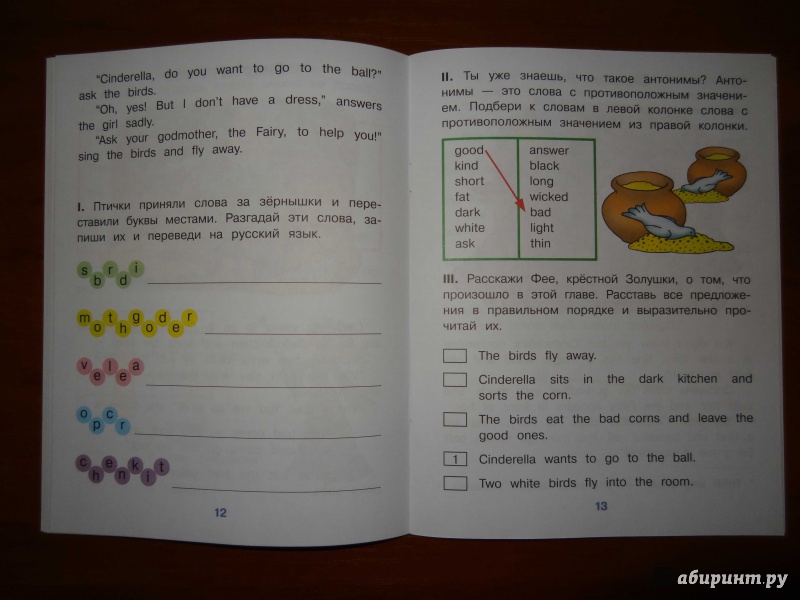 "Cinderella, do you want to go to the ball?"
ask the birds.
"Oh, yes! But I don't have a dress," answers
the girl sadly.
"Ask your godmother, the Fairy, to help you!"
sing the birds and fly away.
I. Птички приняли слова за зёрнышки и пере-
ставили буквы местами. Разгадай эти слова, за-
пиши их и переведи на русский язык.
s b r d i
m o t h g o d e r
v e l e a
o p c r
c h e n k i t
12
II. Ты уже знаешь, что такое антонимы? Анто-
нимы — это слова с противоположным значени-
ем. Подбери к словам в левой колонке слова с
противоположным значением из правой колонки.
good answer
kind black
short long
fat wicked
dark bad
white light
ask thin
III. Расскажи Фее, крёстной Золушки, о том, что
произошло в этой главе. Расставь все предложе-
ния в правильном порядке и выразительно про-
читай их.
The birds fly away.
Cinderella sits in the dark kitchen and
sorts the corn.
The birds eat the bad corns and leave the
good ones.
1 Cinderella wants to go to the ball.
Two white birds fly into the room.
13
абиринт.ру